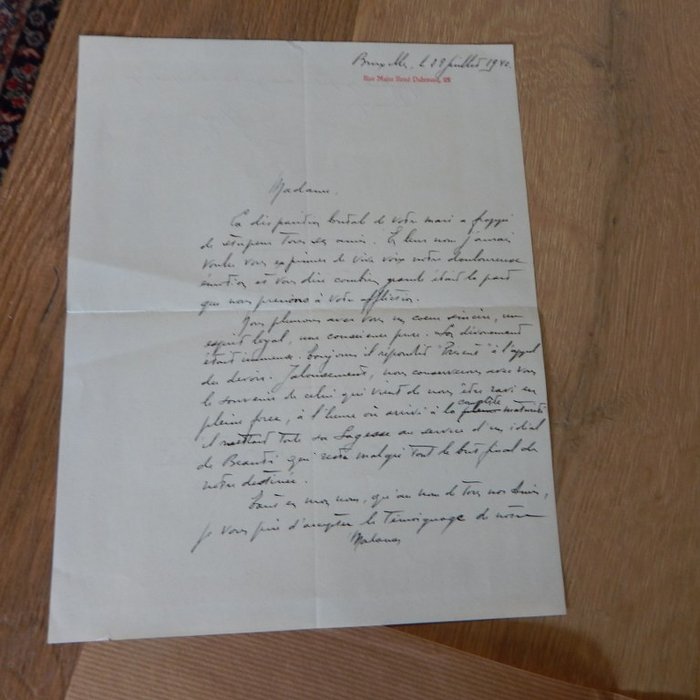 Bruxelles, le 28 juillet 1940.
Madame.
La disparition brutale de votre mari a frappé
de stupeur tous ses amis. En leur nom j'aurais
voulu vous exprimer de vive voix notre douloureuse
émotion et vous dire combien grande était la part
que nous prenions à votre affliction.
Nous pleurons avec vous un coeur sincère, un
esprit loyal, une conscience pure. Son dévouement
était immense. Toujours il répondit "Présent" à l'appel
du devoir. Jalousement, nous conserverons avec vous
le souvenir de celui qui vient de nous être ravi en
pleine force, à l'heure où arrivé à la complète maturité
il mettait toute sa Sagesse au service d'un idéal
de Beauté qui reste malgré tout le but final de
notre destinée.
Tant en mon nom, qu'au nom de tous nos amis,
je vous prie d'accepter le témoignage de notre
Madame